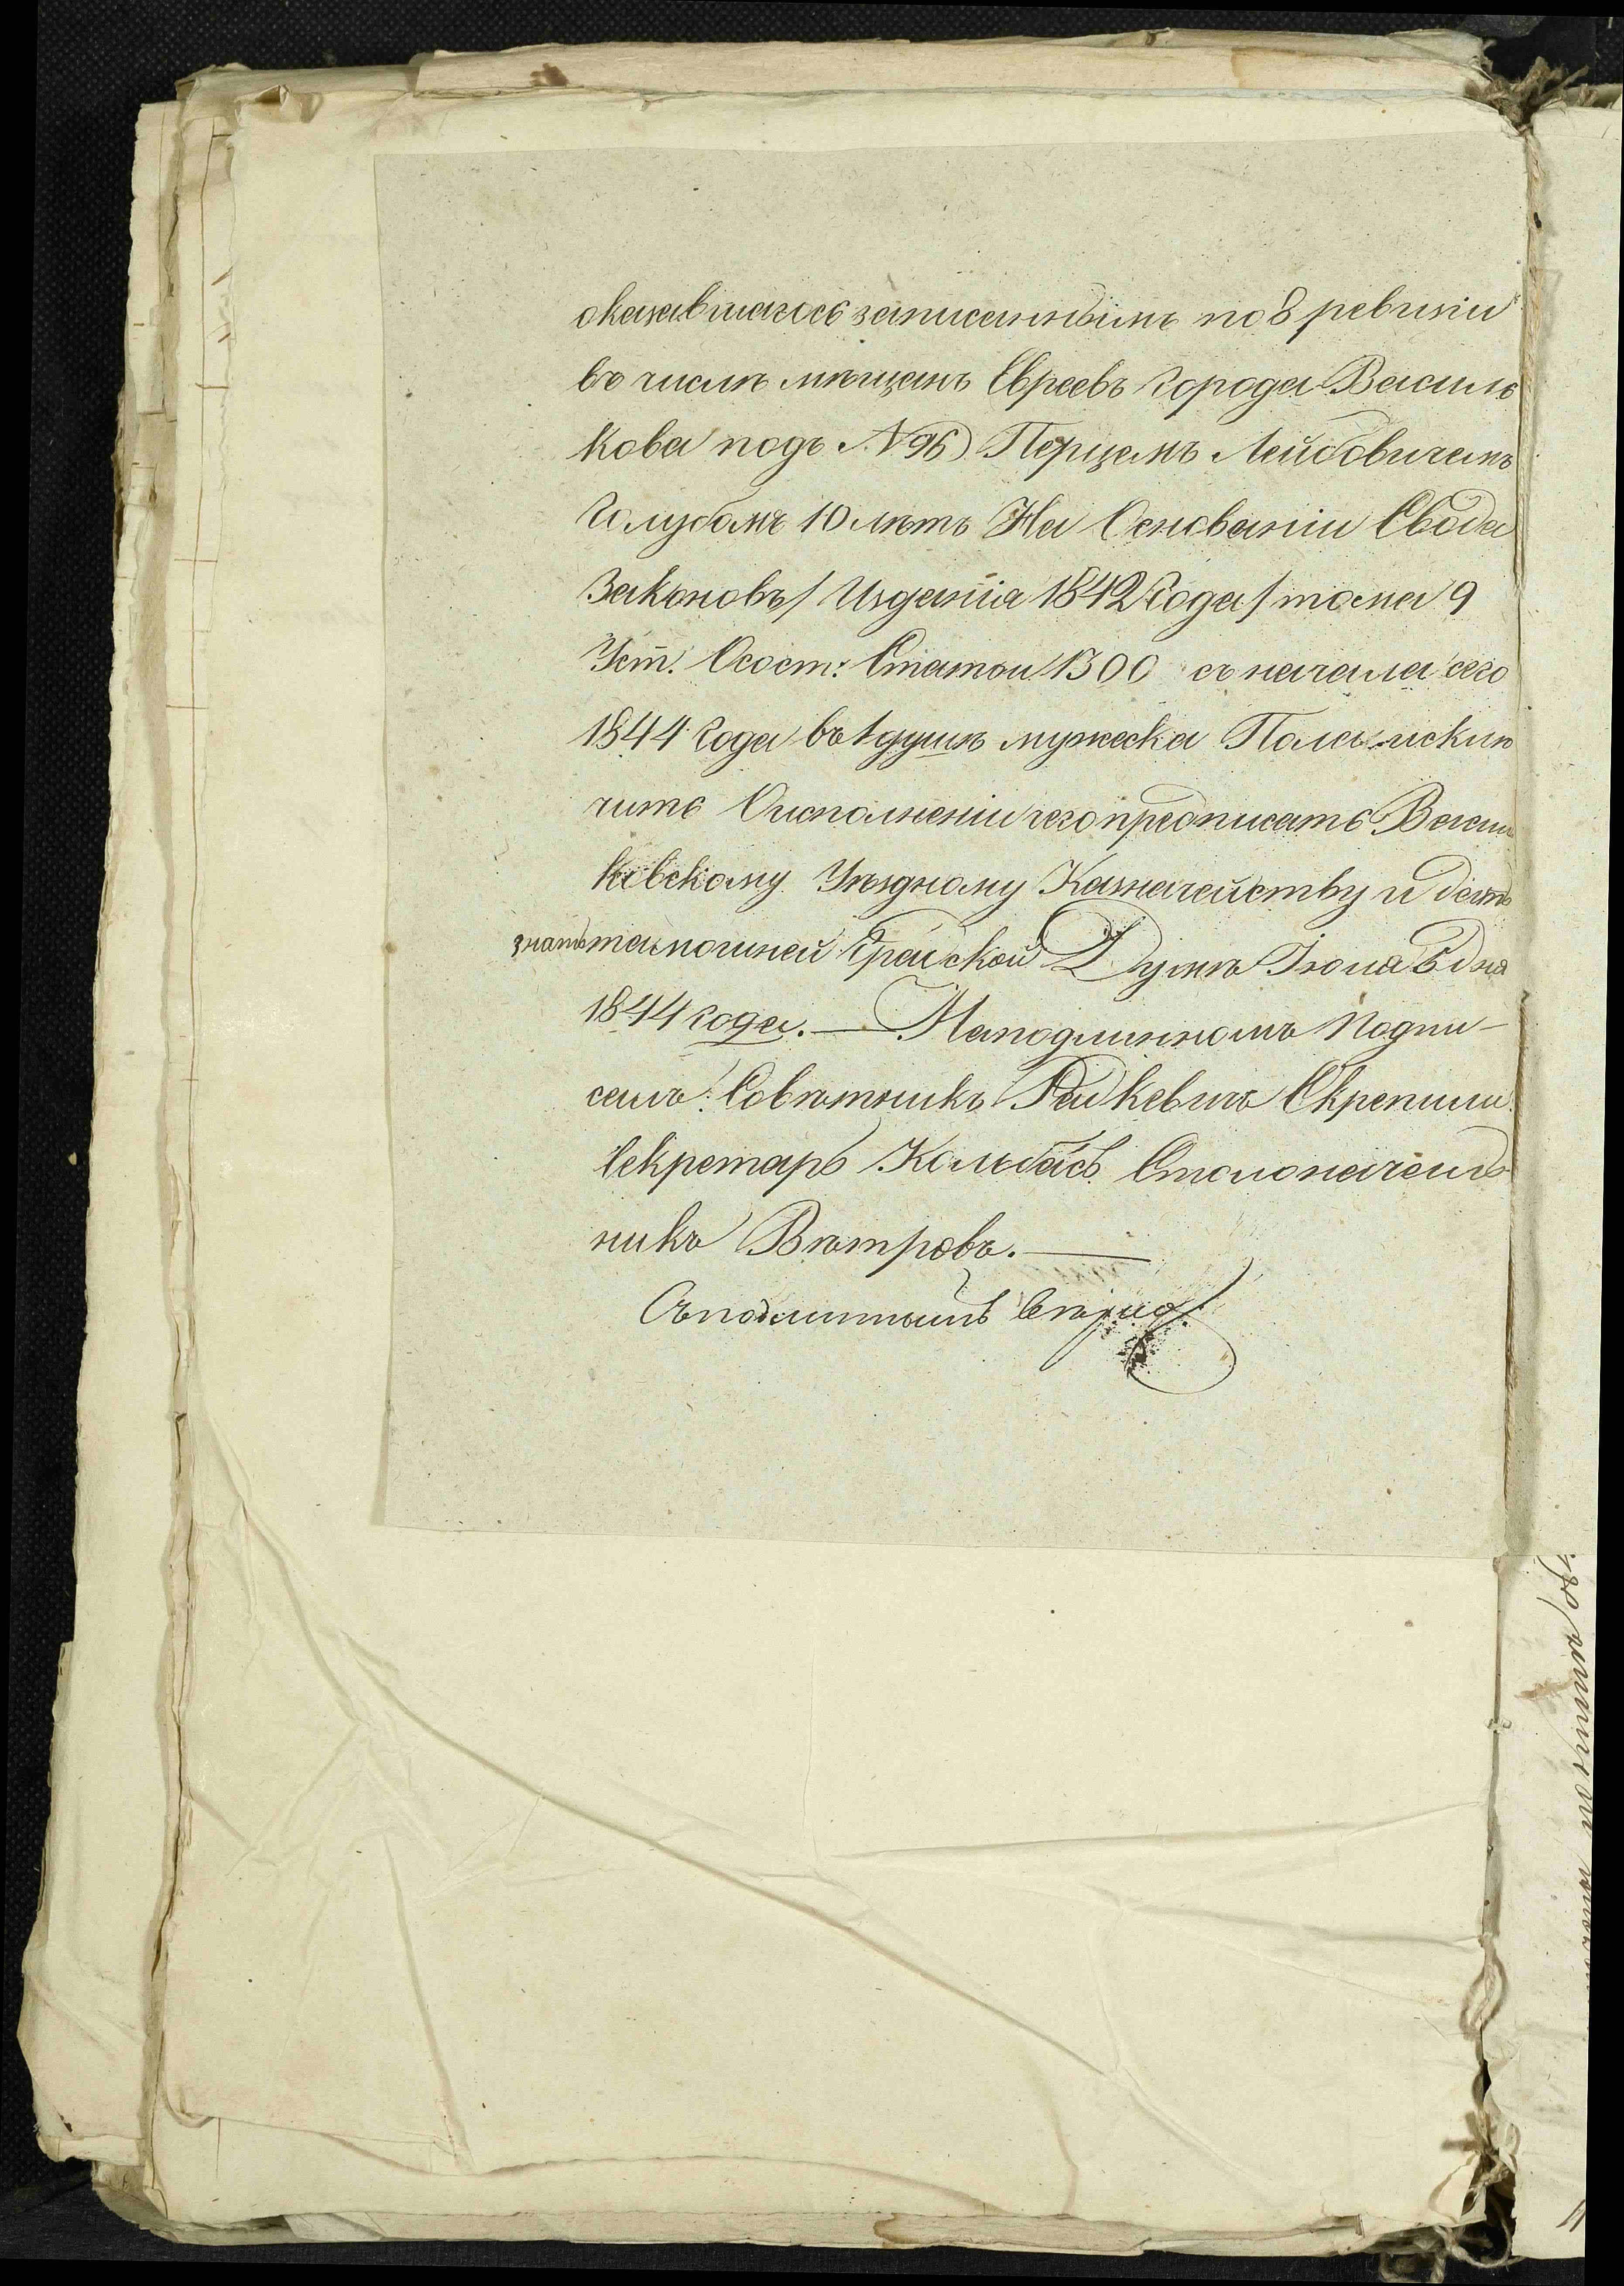 оказавшагось записаннымъ по 8 ревизіи
въ числѣ мѣщанъ Евреевъ города Василь
кова подъ № 96) Перцемъ Лейбовичемъ
Голубомъ 10 лѣтъ На Основаніи Свода
Законовъ / Изданія 1842 Года / тома 9
Уст. О сост: Статьи 1300 съ начала сего
1844 Года въ 1 душѣ мужеска Пола исклю
чить О исполненіи чего предписать Василь
ковскому Уѣздному Казначейству и дать
знать тамошней Градской Думѣ Іюля дня
1844 года. — На подлинномъ подпи-
салъ: Совѣтникъ Радкевичъ Скрепили
Секретарь Кольбасъ Столоначаль-
никъ Вѣтровъ. —
Съ подлиннымъ вѣрно: